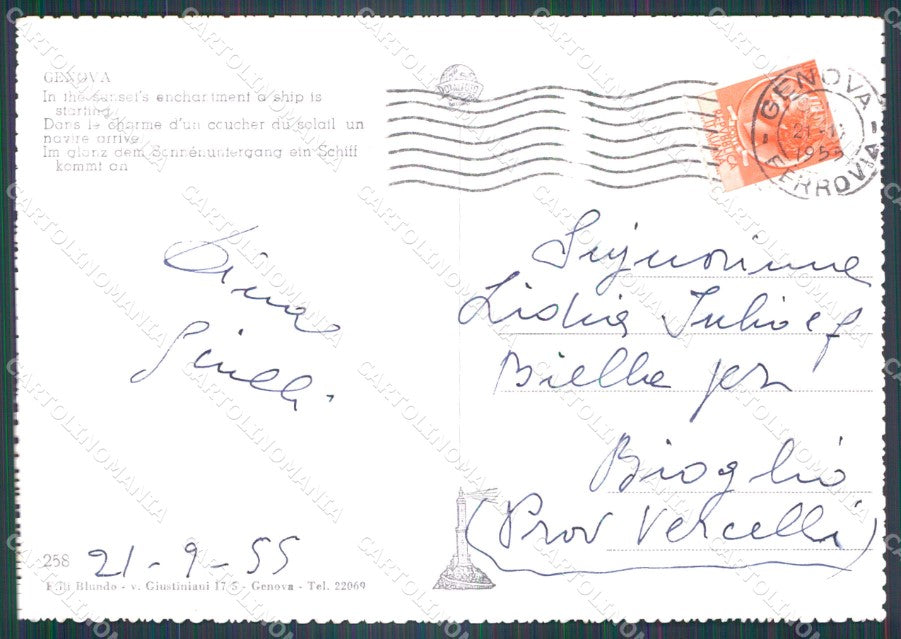 GENOVA
In the sunset's enchantment a ship is
starting
Dans le charme d'un coucher du soleil un
navire arrive
Im glanz dem Sonnenuntergang ein Schiff
kommt an
GENOVA
FERROVIA
1955
Signorina
Lidia
Bielle per
Bioglio
(Prov Vercelli)
258
21-9-55
F.lli Blundo - v. Giustiniani 17 5 - Genova - Tel. 22069
CARTOLINOMANIA